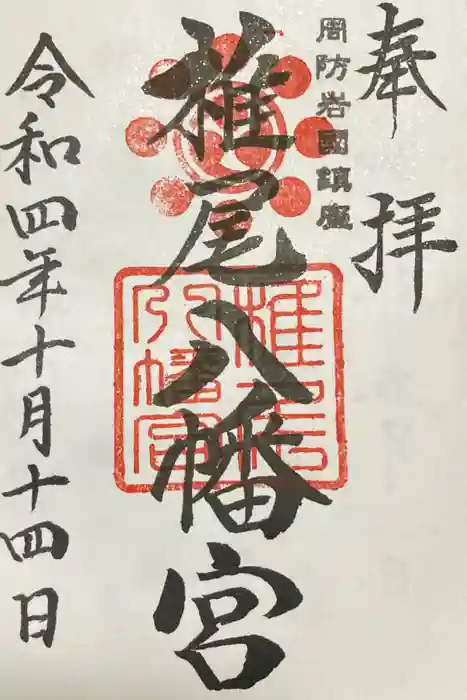 奉拝
周防岩國鎮座
椎尾八幡宮
椎尾八幡宮
令和四年十月十四日